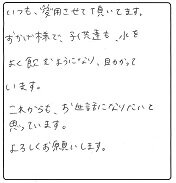 いつも、愛用させて頂いてます。
おかげ様で、子供達も、水を
よく飲むようになり、助かって
います。
これからも、お世話になりたいと
思っています。
よろしくお願いします。